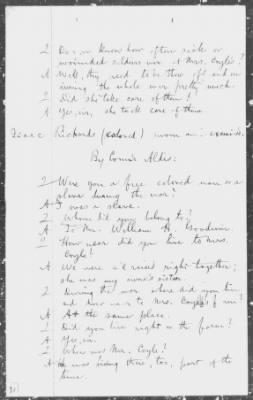 Q Do you know how often sick or
wounded soldiers were at Mrs. Coyle's?
A Well, they used to be there off and on
during the whole war pretty much.
Q Did she take care of them?
A Yes, sir, she took care of them.
Isaac Richards (colored) sworn and examined.
By Com'r Aldis:
Q Were you a free colored man or a
slave during the war?
A I was a slave.
Q Whom did you belong to?
A To Mr. William H. Goodwin.
Q How near did you live to Mrs.
Coyle?
A We were all raised right together;
she was my owner's sister.
Q During the war where did you live
and how near to Mrs. Coyle's farm?
A At the same place.
Q Did you live right on the farm?
A Yes, sir.
Q Where was Mr. Coyle?
A He was living there, too, part of the
time.